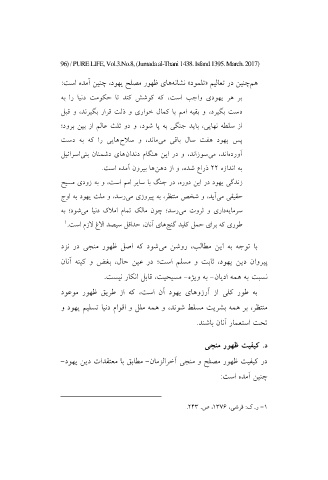 96) / PURE LIFE, Vol.3.No.8, (Jumada al-Thani 1438. Isfand 1395. March. 2017)
هم‌چنین در تعالیم «تلمود» نشانه‌های ظهور مصلح یهود، چنین آمده است:
بر هر یهودی واجب است، که کوشش کند تا حکومت دنیا را به
دست بگیرد، و بقیه امم با کمال خواری و ذلت قرار بگیرند، و قبل
از سلطه نهایی، باید جنگی به پا شود، و دو ثلث عالم از بین برود؛
پس یهود هفت سال باقی می‌ماند، و سلاح‌هایی را که به دست
آورده‌اند، می‌سوزاند، و در این هنگام دندان‌های دشمنان بنی‌اسرائیل
به اندازه ۲۲ ذراع شده، و از دهن‌ها بیرون آمده است.
زندگی یهود در این دوره، در جنگ با سایر امم است، و به زودی مسیح
حقیقی می‌آید، و شخص منتظر، به پیروزی می‌رسد، و ملت یهود به اوج
سرمایه‌داری و ثروت می‌رسد؛ چون مالک تمام املاک دنیا می‌شود؛ به
طوری که برای حمل کلید گنج‌های آنان، حداقل سیصد الاغ لازم است.۱
با توجه به این مطالب، روشن می‌شود که اصل ظهور منجی در نزد
پیروان دین یهود، ثابت و مسلم است؛ در عین حال، بغض و کینه آنان
نسبت به همه ادیان- به ویژه- مسیحیت، قابل انکار نیست.
به طور کلی از آرزوهای یهود آن است، که از طریق ظهور موعود
منتظر، بر همه بشریت مسلط شوند، و همه ملل و اقوام دنیا تسلیم یهود و
تحت استعمار آنان باشند.
د. کیفیت ظهور منجی
در کیفیت ظهور مصلح و منجی آخرالزمان- مطابق با معتقدات دین یهود-
چنین آمده است:
۱- ر.ک: قرشی، ۱۳۷۶، ص. ۲۴۳.